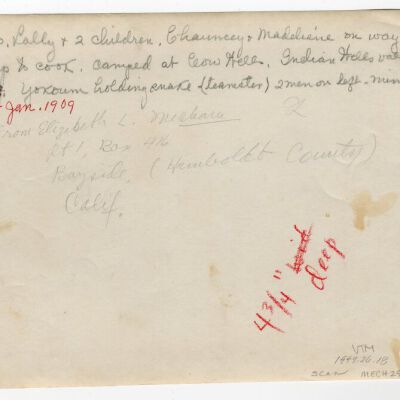 Lally + 2 children, Chauncey + Madeleine on way
to cook. camped at Crow Hill. Indian Hills
Yokoum holding snake (teamster) 2 men on left -
Jan. 1909
From Elizabeth L.
Rt 1, Box 416
Bayside, (Humboldt County)
Calif.
4 3/4" deep
VTM
1999.26.18
SCAN MECH 29